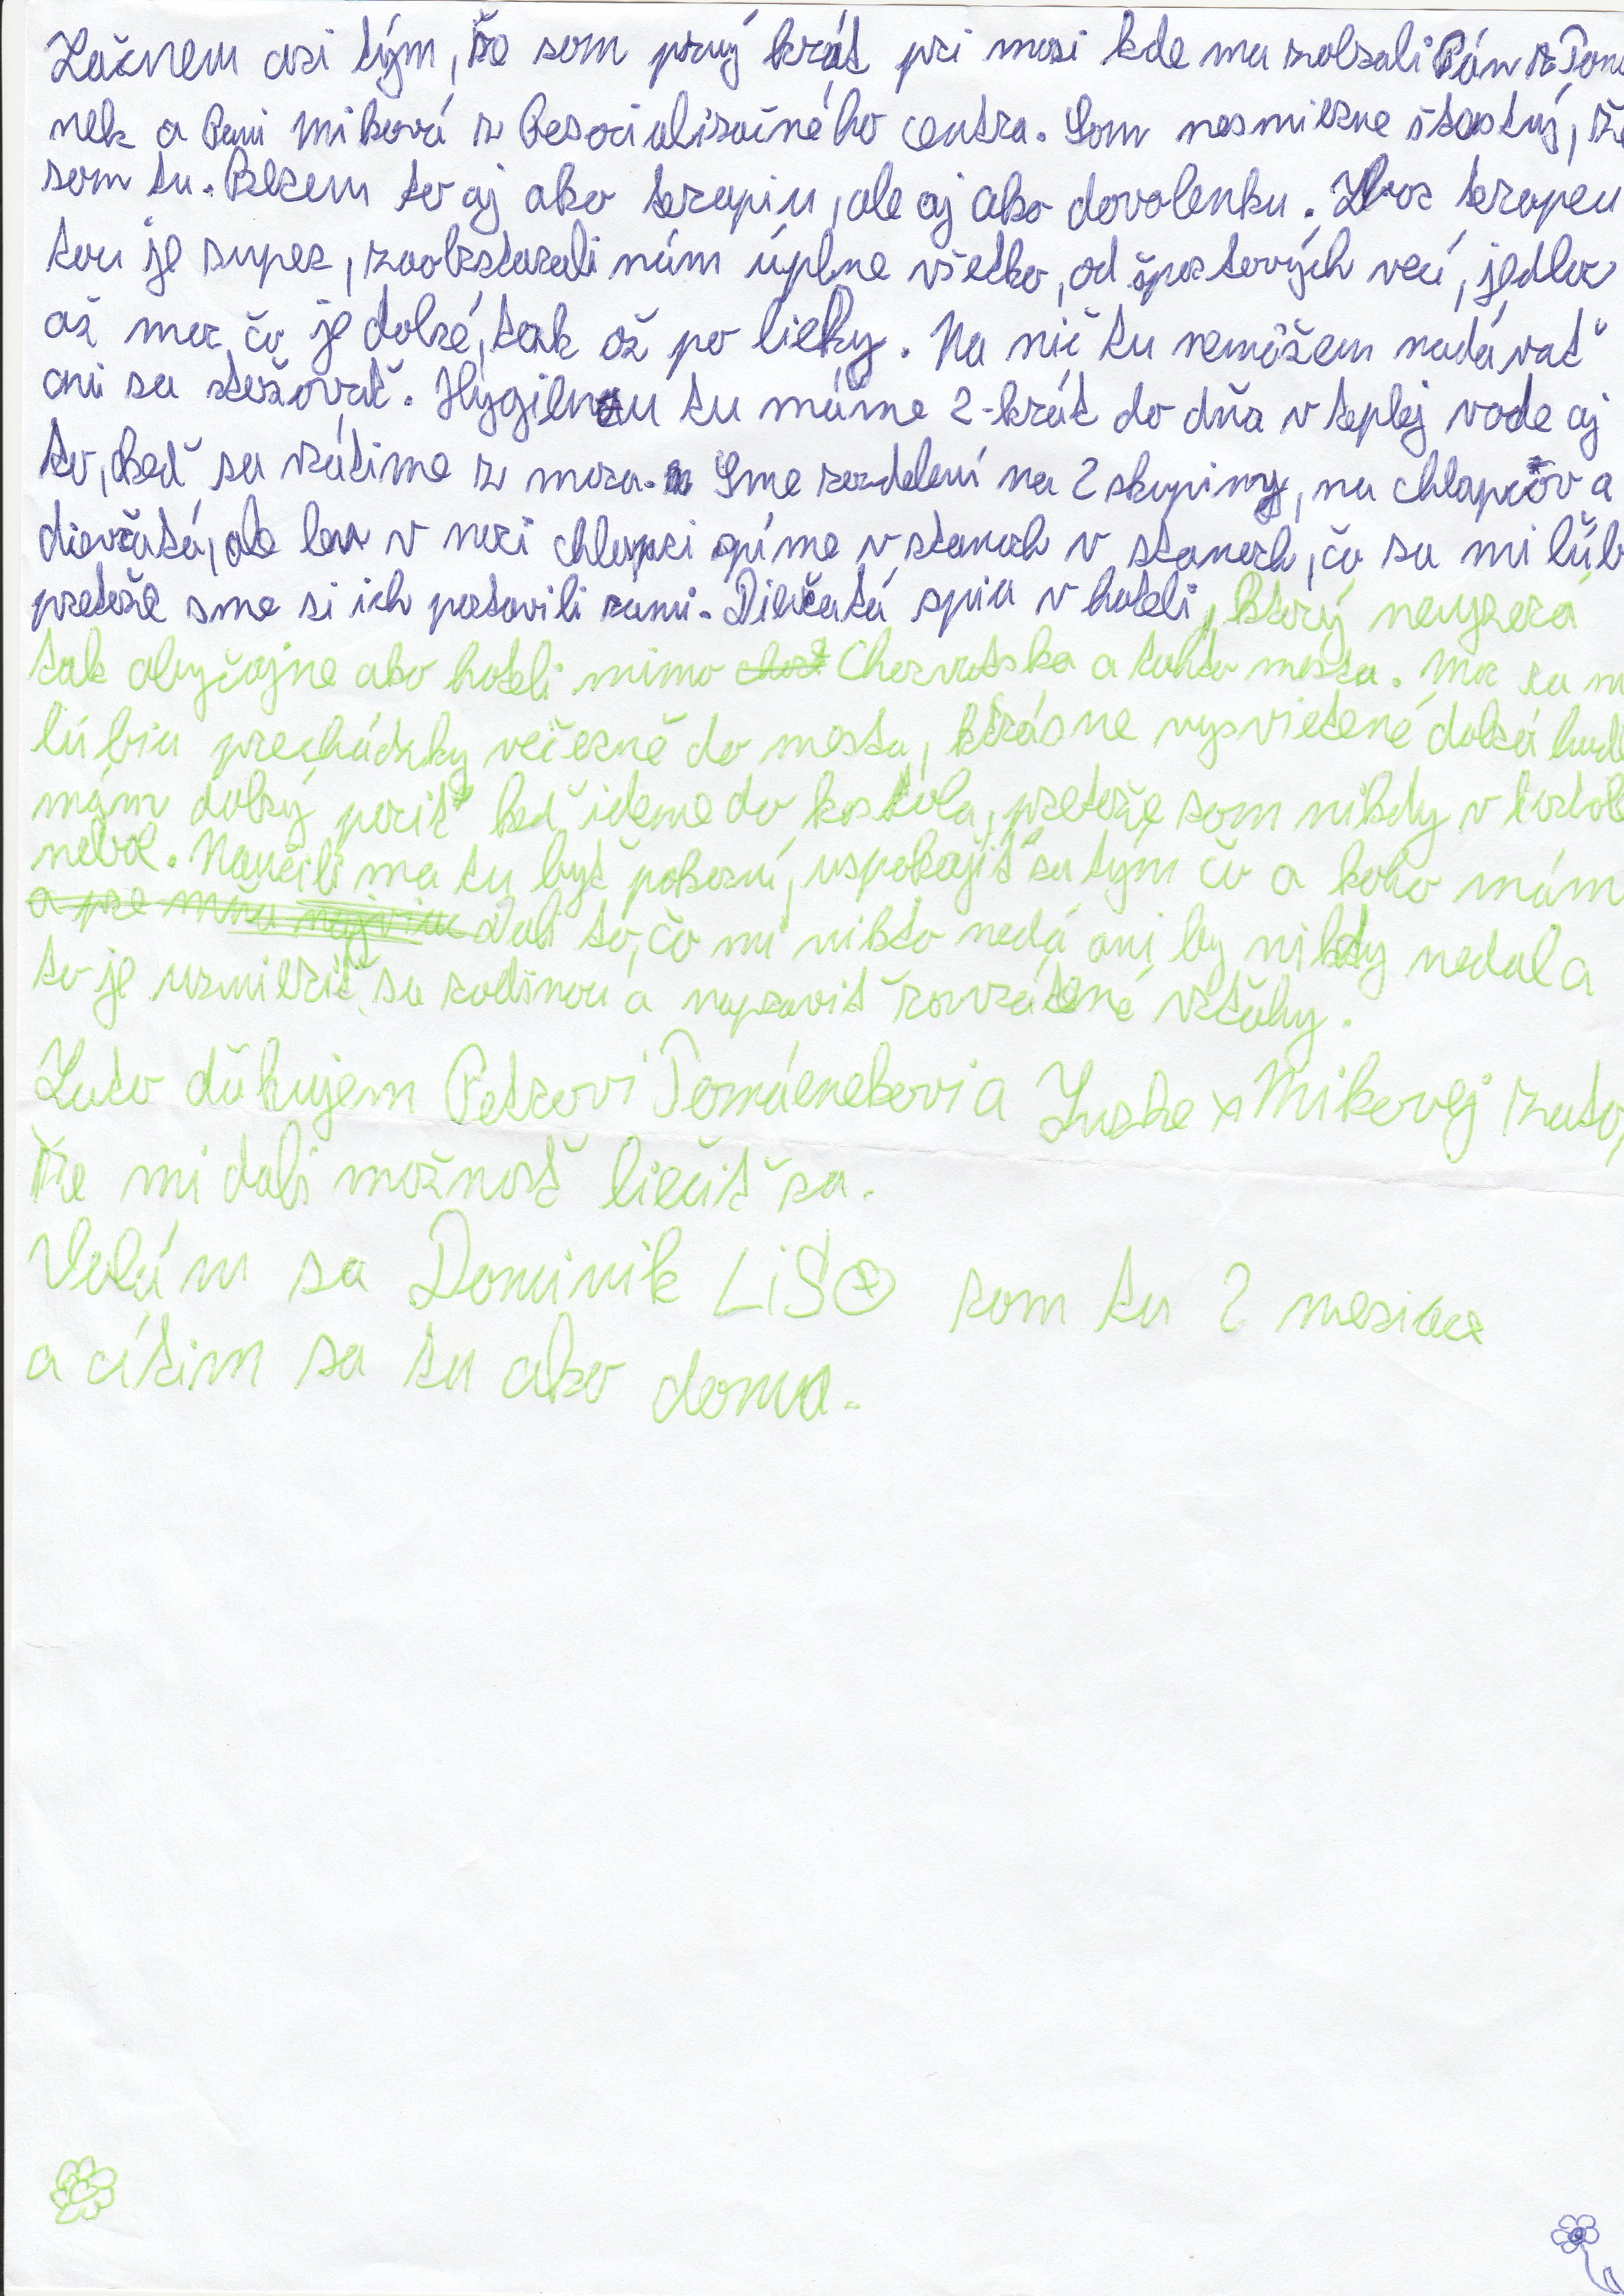 Začnem asi tým, že som prvý krát pri mori kde ma zobrali Pán Tomá
nek a Pani Miková z Resocializačného centra. Som nesmierne štastný, že
som tu. Berem to aj ako terapiu, ale aj ako dovolenku. Zbor terapeu
tou je super, zaobstarali nám úplne všetko, od športových vecí, jedlo
až moc čo je dobré, tak až po lieky. Na nič tu nemôžem nadávať
ani sa stežovať. Hygienu tu máme 2-krát do dňa v teplej vode aj
to, keď sa vrátime z mora. Sme rozdelení na 2 skupiny, na chlapcov a
dievčatá, ale len v noci chlapci spíme v stanoch v stanoch, čo sa mi lúb
pretože sme si ich postavili sami. Dievčatá spia v hoteli, ktorý nevyzerá
tak obyčajne ako hoteli mimo chor Chorvatska a tohto mesta. Moc sa m
lúbia prechádzky večerné do mesta, krásne vysvietené dobrá hudb
mám dobrý pocit keď ideme do kostola, pretože som nikdy v kostole
nebol. Naučili ma tu byť pokorní, uspokojiť sa tým čo a koho mám
a pre mňa najviac Dali to, čo mi nikto nedá ani by nikdy nedal a
to je uzmieriť sa rodinou a napraviť rozvrátené vzťahy.
Zato ďakujem Petrovi Tomáenekovi a Zuzke Mikovej zato,
že mi dali možnosť liečiť sa.
Volám sa Dominik LiŠO som tu 2 mesiace
a cítim sa tu ako doma.